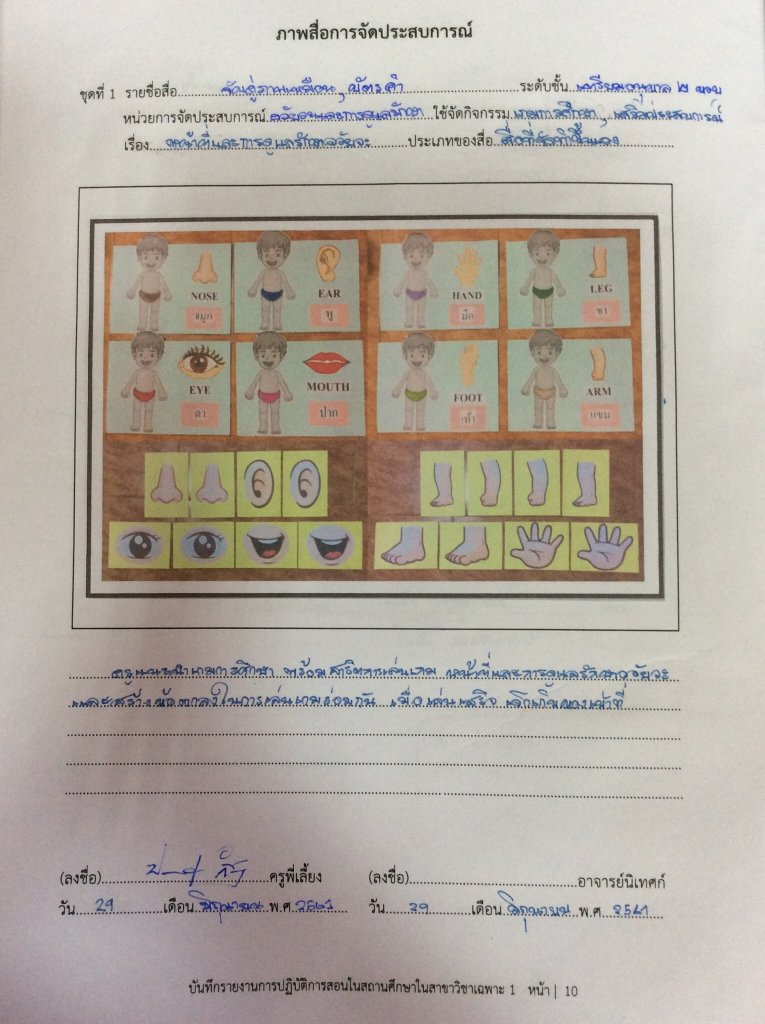 ภาพสื่อการจัดประสบการณ์
ชุดที่ 1 รายชื่อสื่อ จับคู่ภาพเหมือน, บัตรคำ ระดับชั้น เตรียมอนุบาล ๒ ขวบ
หน่วยการจัดประสบการณ์ อวัยวะและการดูแลรักษา ใช้จัดกิจกรรม เกมการศึกษา, เสริมประสบการณ์
เรื่อง หน้าที่และการดูแลรักษาอวัยวะ ประเภทของสื่อ สื่อที่จัดทำขึ้นเอง
NOSE EAR HAND LEG
จมูก หู มือ ขา
EYE MOUTH FOOT ARM
ตา ปาก เท้า แขน
ครูแนะนำเกมการศึกษา พร้อมสาธิตการเล่นเกม หน้าที่และการดูแลรักษาอวัยวะ
และสร้างข้อตกลงในการเล่นเกมร่วมกัน เมื่อเล่นเสร็จ เก็บของเข้าที่
(ลงชื่อ) ครูพี่เลี้ยง (ลงชื่อ) อาจารย์นิเทศก์
วัน 29 เดือน มิถุนายน พ.ศ 2561 วัน 29 เดือน มิถุนายน พ.ศ 2561
บันทึกรายงานการปฏิบัติการสอนในสถานศึกษาในสาขาวิชาเฉพาะ 1 หน้า | 10